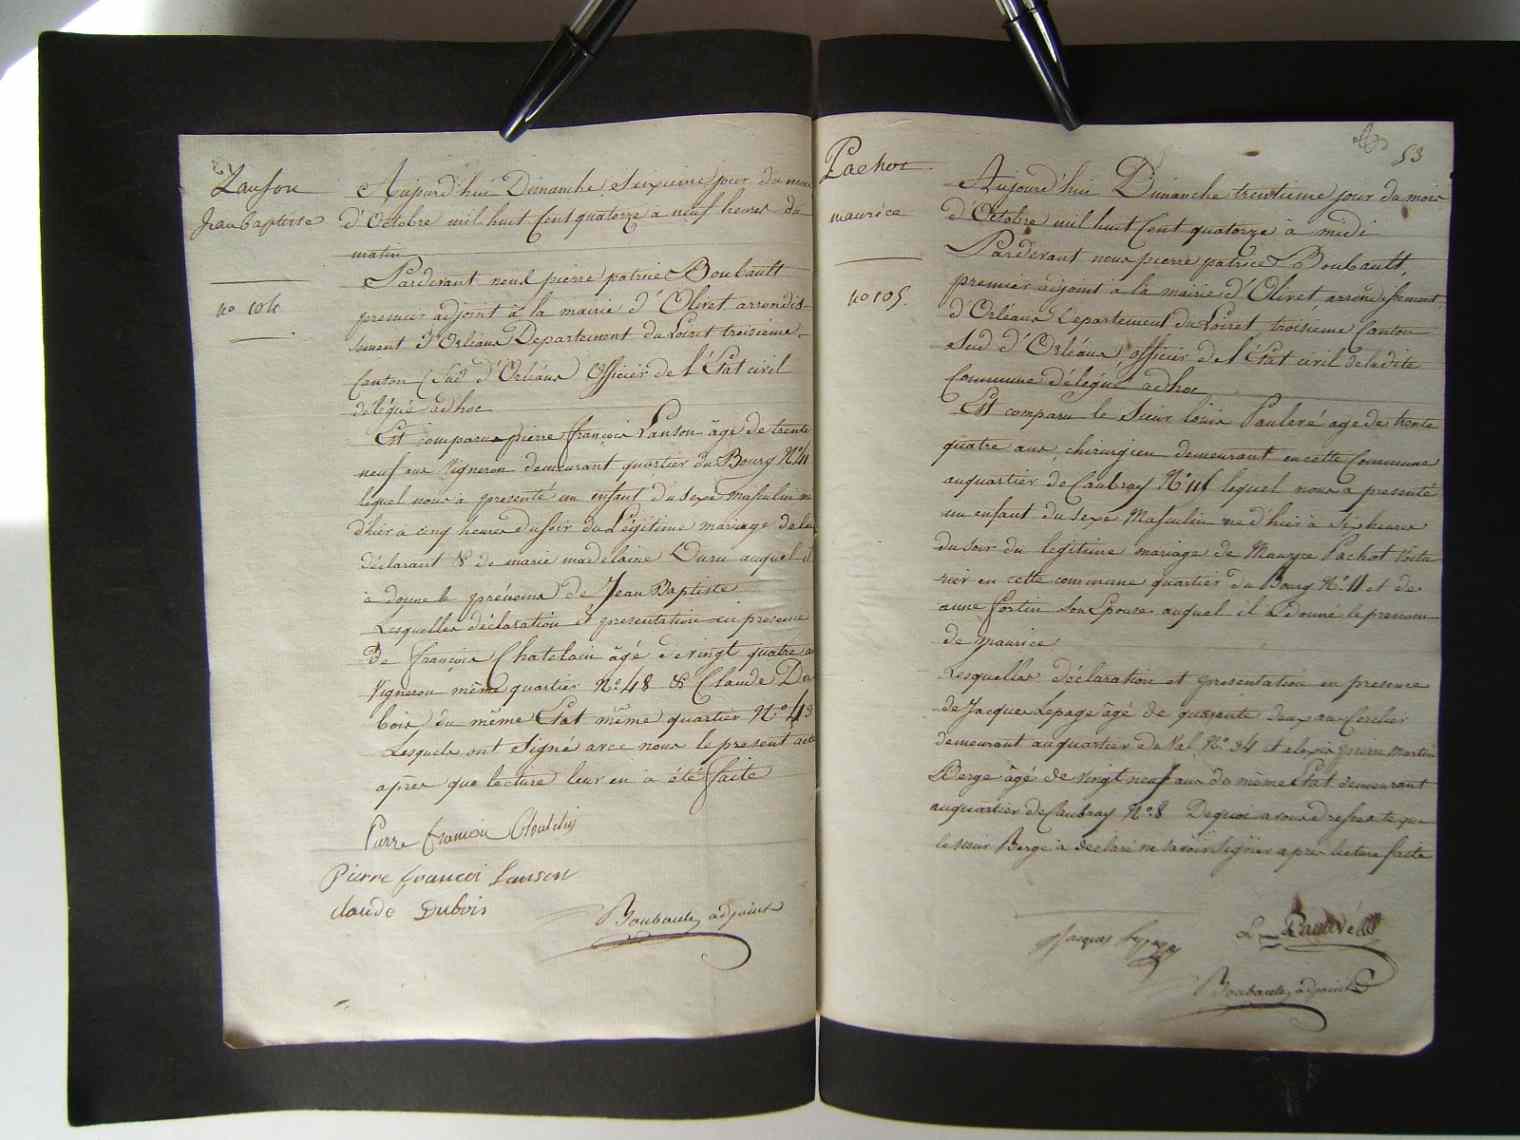 Lanson
Jean baptiste
no 104
Aujourd'hui Dimanche seixieme jour du mois
d'Octobre mil huit Cent quatorze a neuf heures du
matin
Pardevant nous pierre patrice Boubault
premier adjoint à la mairie d'Olivet arrondis-
sement d'Orléans Departement du Loiret troisieme
Canton Sud d'Orléans Officier de l'Etat civil
délégué adhoc
Est comparu pierre françois Lanson âgé de trente
neuf ans Vigneron demeurant quartier du Bourg No 41
lequel nous à presenté un enfant du sexe masculin né
d'hier a cinq heures du soir du Légitime mariage de lui
déclarant & de marie madelaine Duru auquel il
à donné le prénoms de Jean Baptiste
Lesquelles déclaration & presentation en presence
de françois Chatelain âgé de vingt quatre ans
Vigneron même quartier No 48 & Claude Du
bois du même Etat même quartier No 43
Lesquels ont signé avec nous le present acte
après que lecture leur en à été faite
Pierre francois
Pierre francoi Lanson
claude Dubois
Boubault adjoint
53
Pachot
maurice
no 105.
Aujourd'hui Dimanche trentieme jour du mois
d'Octobre mil huit Cent quatorze à midi
Pardevant nous pierre patrice Boubault,
premier adjoint à la mairie d'Olivet, arrondissement
d'Orléans Departement du Loiret, troisieme Canton
Sud d'Orléans officier de l'Etat civil deladite
Commune délégué adhoc
Est comparu le sieur louis Pauleré age de trente
quatre ans, chirurgien demeurant en cette Commune
auquartier de Caubray No 116 lequel nous a presenté
un enfant du sexe Masculin né d'hier à six heures
du soir du legitime mariage de Mauryce Pachot Voitu
rier en cette commune quartier du Bourg No 11 et de
anne fortin son Epouse auquel il a donné le prenom
de maurice
Lesquelles déclaration et presentation en presence
de Jacques Lepage âgé de quarante deux ans Cerclier
demeurant auquartier du Val No 34 et alexis pierre martin
Berge âgé de vingt neuf ans du même Etat demeurant
auquartier de Caubray No 8 Dequoi avons dressé acte que
le sieur Berge à declaré ne savoir signer apres lecture faite
Jacques lepage
Boubault, adjoint